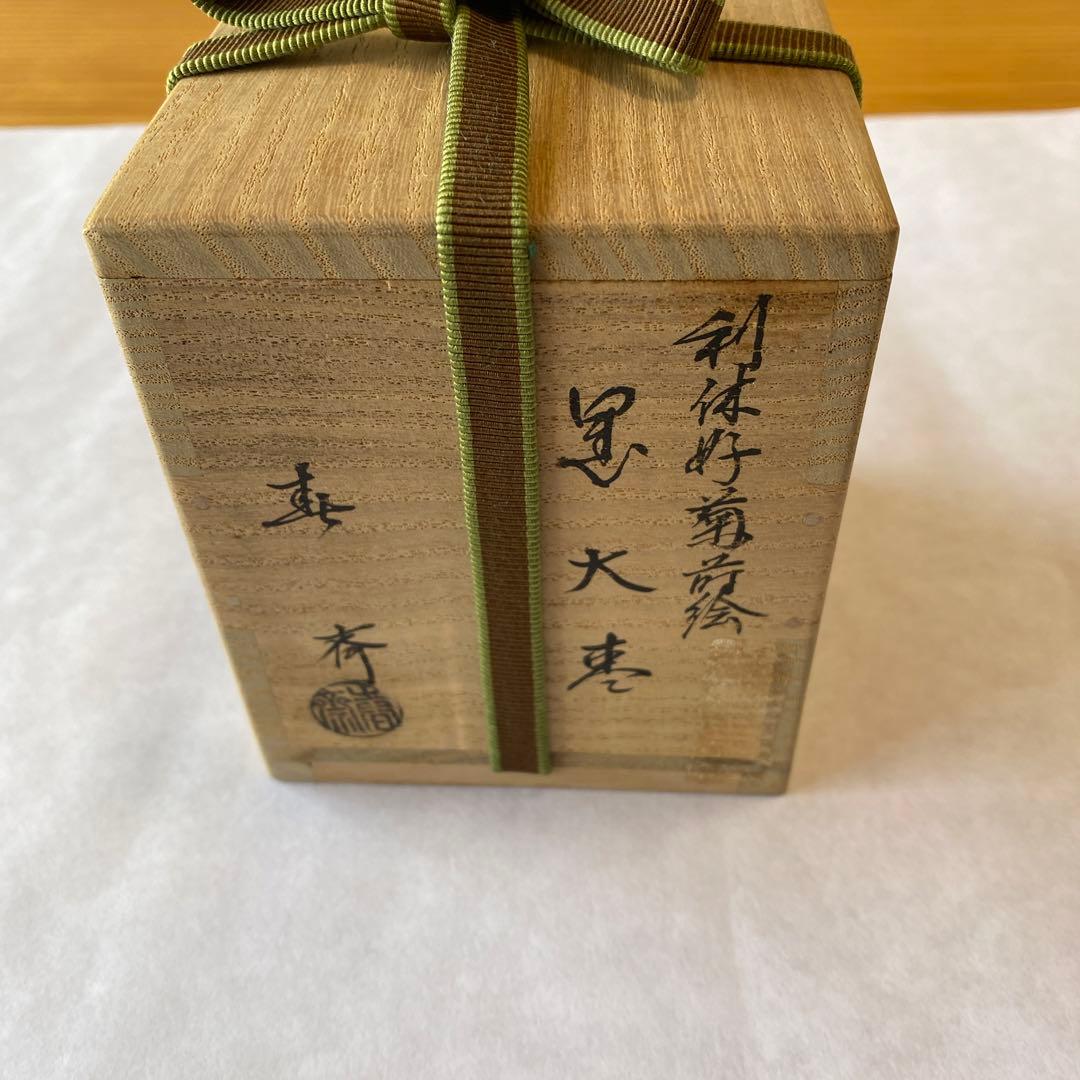 利休好菊蒔絵
黒大棗
春斎